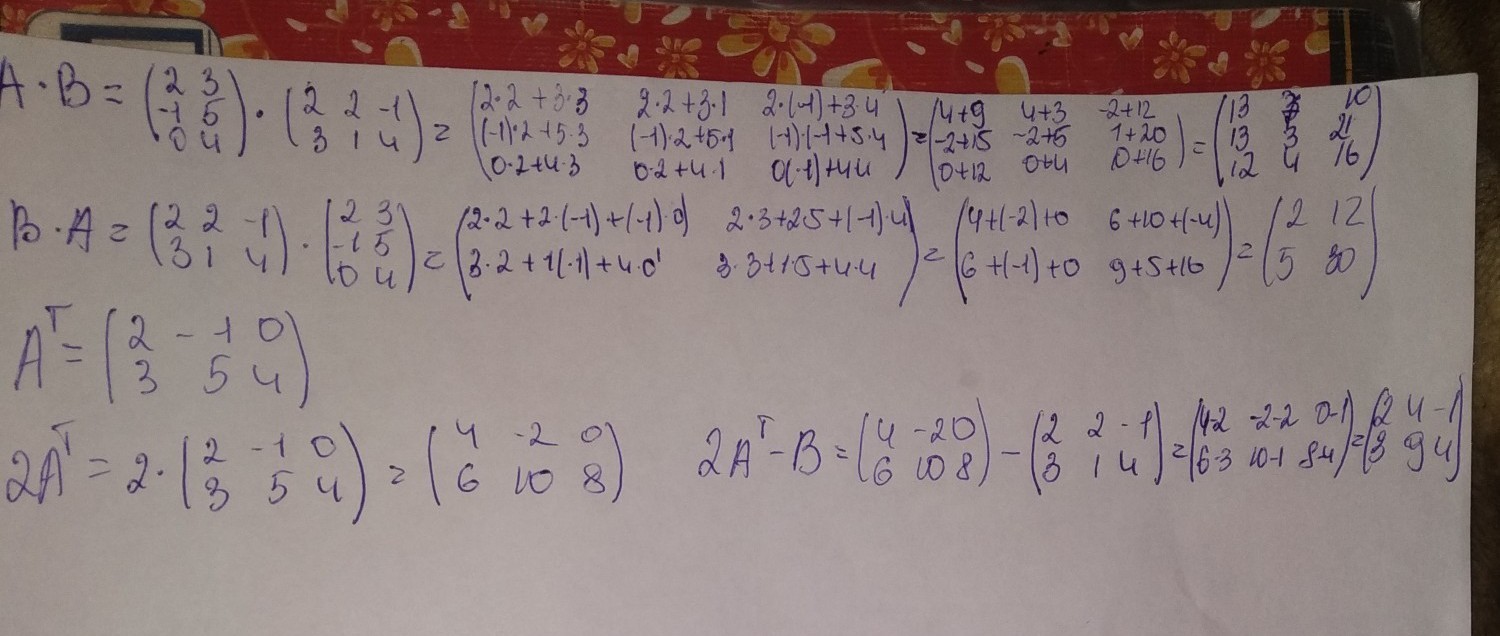 A · B = (2 3; -1 5; 0 4) · (2 2 -1; 3 1 4) = (2·2+3·3 2·2+3·1 2·(-1)+3·4; (-1)·2+5·3 (-1)·2+5·1 (-1)·(-1+5·4; 0·2+4·3 0·2+4·1 0(-1)+4·4) = (4+9 4+3 -2+12; -2+15 -2+5 1+20; 0+12 0+4 0+16) = (13 7 10; 13 3 21; 12 4 16)
B · A = (2 2 -1; 3 1 4) · (2 3; -1 5; 0 4) = (2·2+2·(-1)+(-1)·0) 2·3+2·5+(-1)·4; 3·2+1(-1)+4·0 3·3+1·5+4·4) = (4+(-2)+0 6+10+(-4); 6+(-1)+0 9+5+16) = (2 12; 5 30)
Aᵀ = (2 -1 0; 3 5 4)
2Aᵀ = 2·(2 -1 0; 3 5 4) = (4 -2 0; 6 10 8) 2Aᵀ - B = (4 -2 0; 6 10 8) - (2 2 -1; 3 1 4) = (4-2 -2-2 0-1; 6-3 10-1 8-4) = (2 4 -1; 3 9 4)